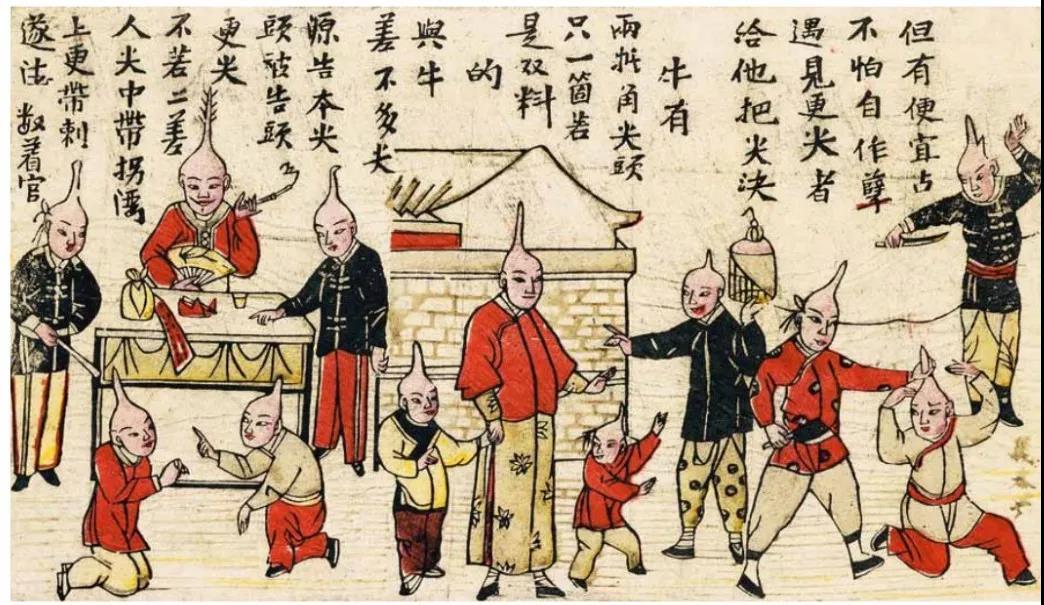 但有便宜占
不怕自作孽
遇見更尖者
給他把尖決
牛有
兩抵角尖頭
只一箇若
是双料
的
與牛
差不多尖
源告本尖
頭被告頭
更尖
不若二差
人尖中帶拐湾
上更帶刺
着官